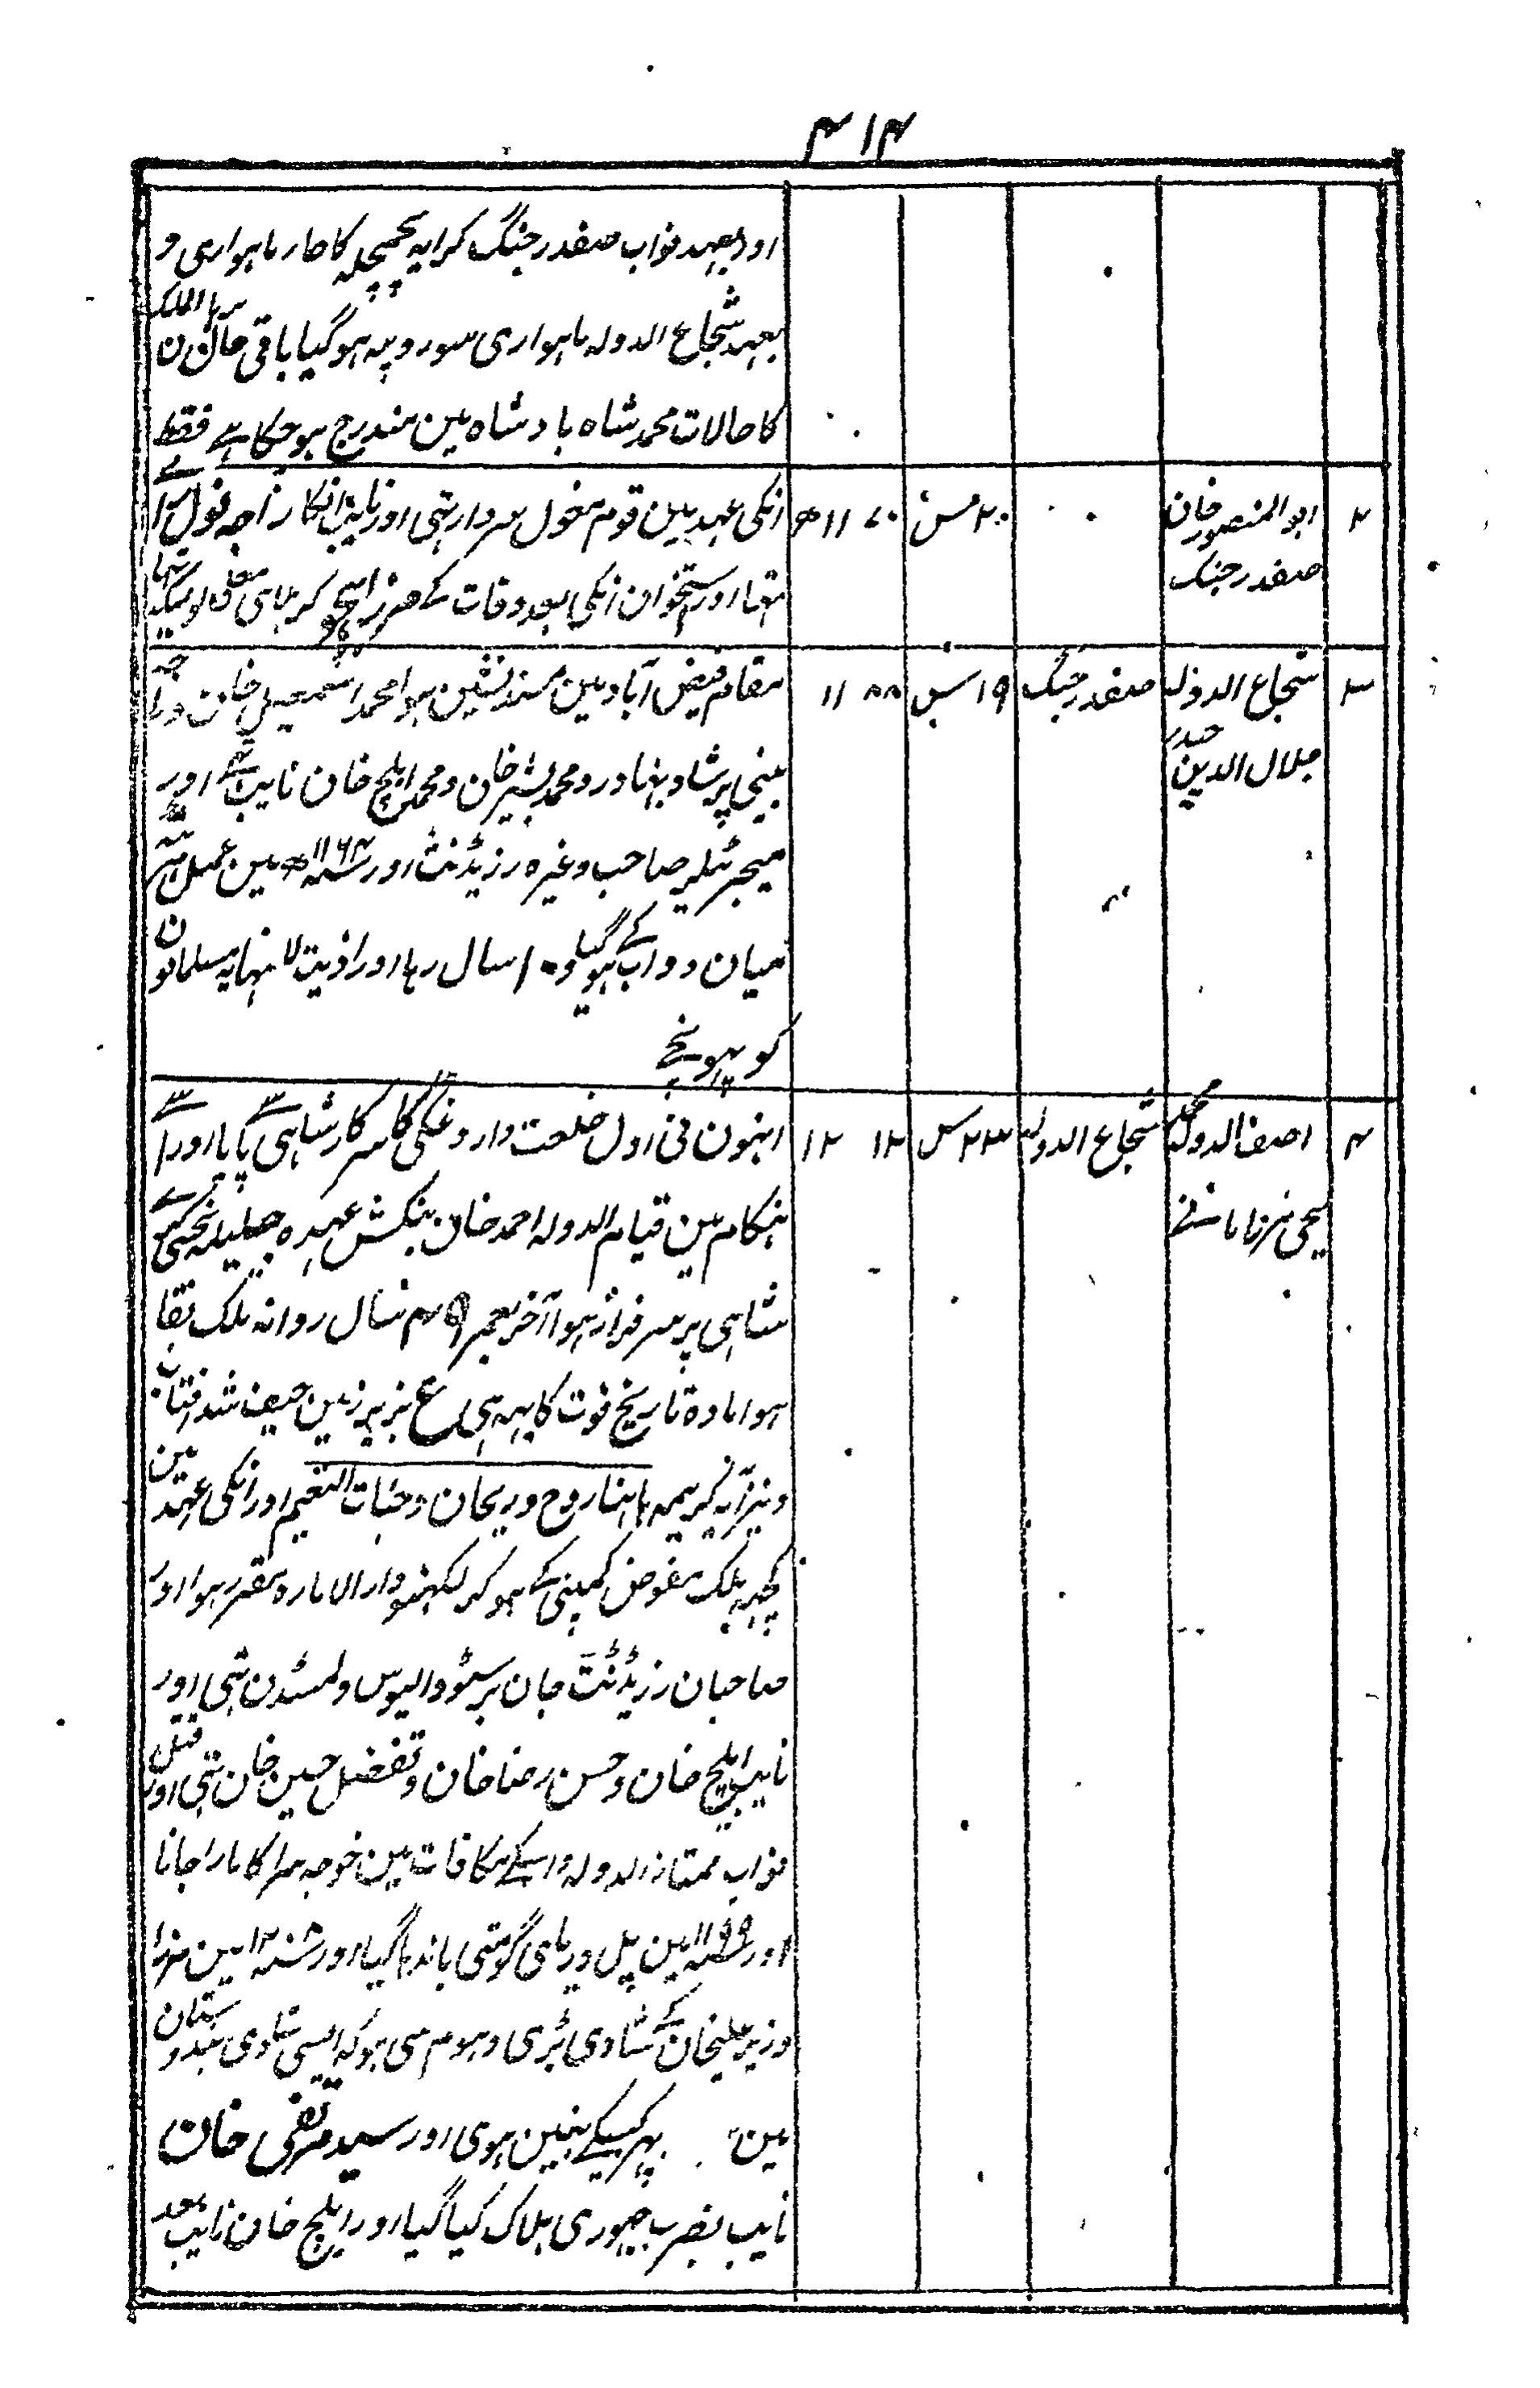 ۴۱۴
اور بعہد نواب صفدر جنگ کرایہ پچمحلہ کا صار ماہواری و
بعہد شجاع الدولہ ماہواری سو روپیہ ہو گیا باقی حال برہان الملک
کا حالات محمد شاہ بادشاہ مین مندرج ہو چکا ہے فقط
۲ ابو المنصور خان صفدر جنگ ۲۰ سن ۱۱۷۰ھ انکی عہد مین قوم مغول سردار تہی اور نایب انکا راجہ نول رائے
تھا اور استخوان انکی بعد وفات کے کربلای معلی لو
۳ شجاع الدولہ جلال الدین حیدر صفدر جنگ ۱۹ س ۱۱۸۸ مقام فیض آباد مین مسند نشین ہوا محمد اسمعیل خان و راجہ
بینی پرشاد بہادر و محمد بشیر خان و محمد ایلچ خان نایب تہے اور
میجر صاحب وغیرہ رزیڈنٹ اور ۱۱۶۴ھ مین عمل مرہٹہ
میان دوآب کے ہو گیا و ۱۰ سال رہا اور اذیت لا نہایہ مسلمانون
کو پہونچے
۴ اصف الدولہ محمد یحیی مرزا امانی شجاع الدولہ ۲۳ س ۱۲۱۲ انہون نی اول خلعت داروغگی کا سرکار شاہی سے پایا اور اسی
ہنگام مین قیام الدولہ احمد خان بنگش عہدہ جلیلہ بخشی گری
شاہی پر سرفراز ہوا آخر بعمر ۴۹ سال روانہ ملک بقا
ہوا مادہ تاریخ فوت کا یہہ ہی ع بزیر زمین حیف شد آفتاب
و نیز آیہ کریمہ ہاہنا روح و ریحان و جنات النعیم اور انکی عہد مین
کچہہ ملک مفوض کمپنی کے ہو کر لکہنو دار الامارہ مقرر ہوا اور
صاحبان رزیڈنٹ جان برسٹو والیوس ولمسڈن تہی اور
نایب ایلچ خان و حسن رضا خان و تفضل حسین خان تہی اور قتل
نواب ممتاز الدولہ و اسکے مکافات مین خوجہ سرا کا مارا جانا
اور ۱۱۹۹ مین پل دریای گومتی باندہا گیا اور ۱۲۰۸ مین مرزا
وزیر علیخان کے شادی بڑی دہوم سی ہوئی کہ ایسی شادی ہندوستان
مین پہر کسیکے نہین ہوی اور سید مرتضی خان
نایب بضرب چہوری ہلاک کیا گیا اور ایلچ خان نایب بعد